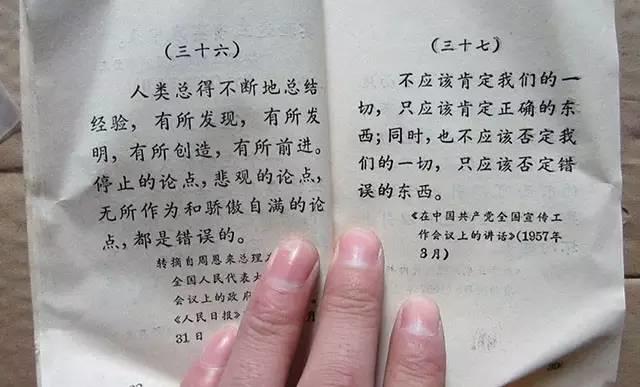 （三十六）
人类总得不断地总结
经验，有所发现，有所发
明，有所创造，有所前进。
停止的论点，悲观的论点，
无所作为和骄傲自满的论
点，都是错误的。
转摘自周恩来总理
全国人民代表大
会议上的政府
《人民日报》
月
31日
（三十七）
不应该肯定我们的一
切，只应该肯定正确的东
西；同时，也不应该否定我
们的一切，只应该否定错
误的东西。
《在中国共产党全国宣传工
作会议上的讲话》（1957年
3月）